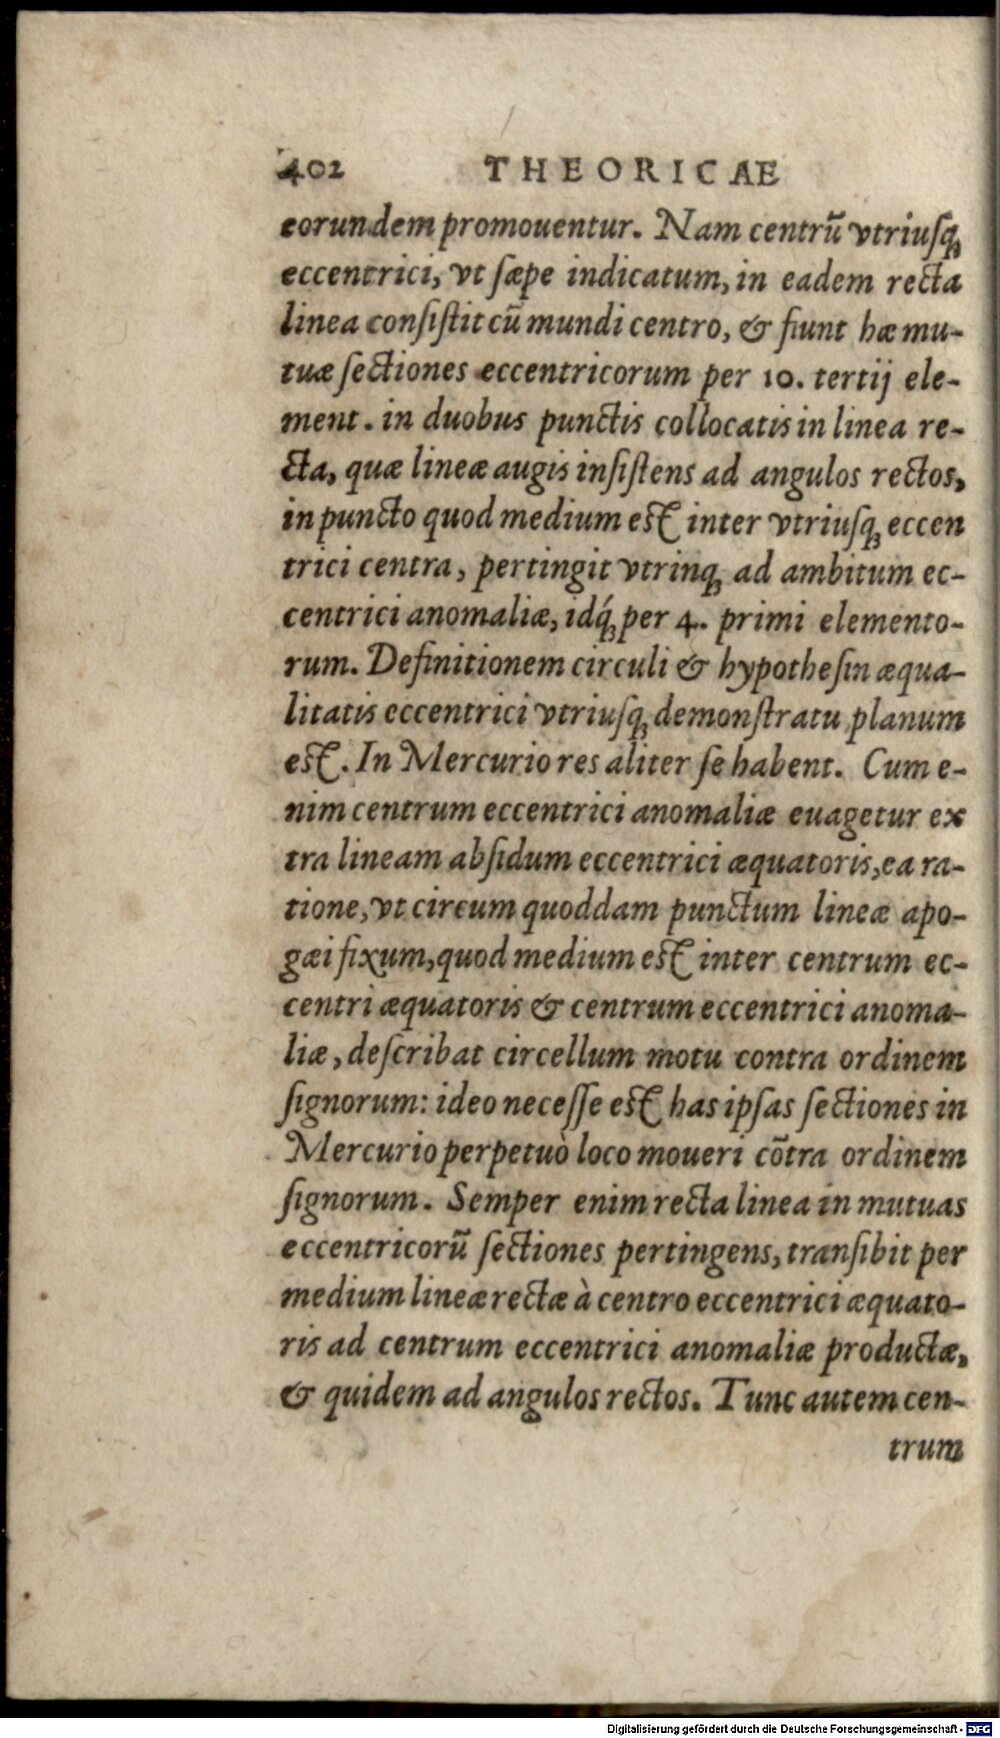 402 THEORICAE
eorundem promouentur. Nam centrū vtriusq́;
eccentrici, vt sæpe indicatum, in eadem recta
linea consistit cū mundi centro, & fiunt hæ mu-
tuæ sectiones eccentricorum per 10. tertij ele-
ment. in duobus punctis collocatis in linea re-
cta, quæ lineæ augis insistens ad angulos rectos,
in puncto quod medium est inter vtriusq; eccen
trici centra, pertingit vtrinq; ad ambitum ec-
centrici anomaliæ, idq́; per 4. primi elemento-
rum. Definitionem circuli & hypothesin æqua-
litatis eccentrici vtriusq; demonstratu planum
est. In Mercurio res aliter se habent. Cum e-
nim centrum eccentrici anomaliæ euagetur ex
tra lineam absidum eccentrici æquatoris, ea ra-
tione, vt circum quoddam punctum lineæ apo-
gæi fixum, quod medium est inter centrum ec-
centri æquatoris & centrum eccentrici anoma-
liæ, describat circellum motu contra ordinem
signorum: ideo necesse est has ipsas sectiones in
Mercurio perpetuò loco moueri cōtra ordinem
signorum. Semper enim recta linea in mutuas
eccentricorū sectiones pertingens, transibit per
medium lineæ rectæ à centro eccentrici æquato-
ris ad centrum eccentrici anomaliæ productæ,
& quidem ad angulos rectos. Tunc autem cen-
trum
Digitalisierung gefördert durch die Deutsche Forschungsgemeinschaft - DFG